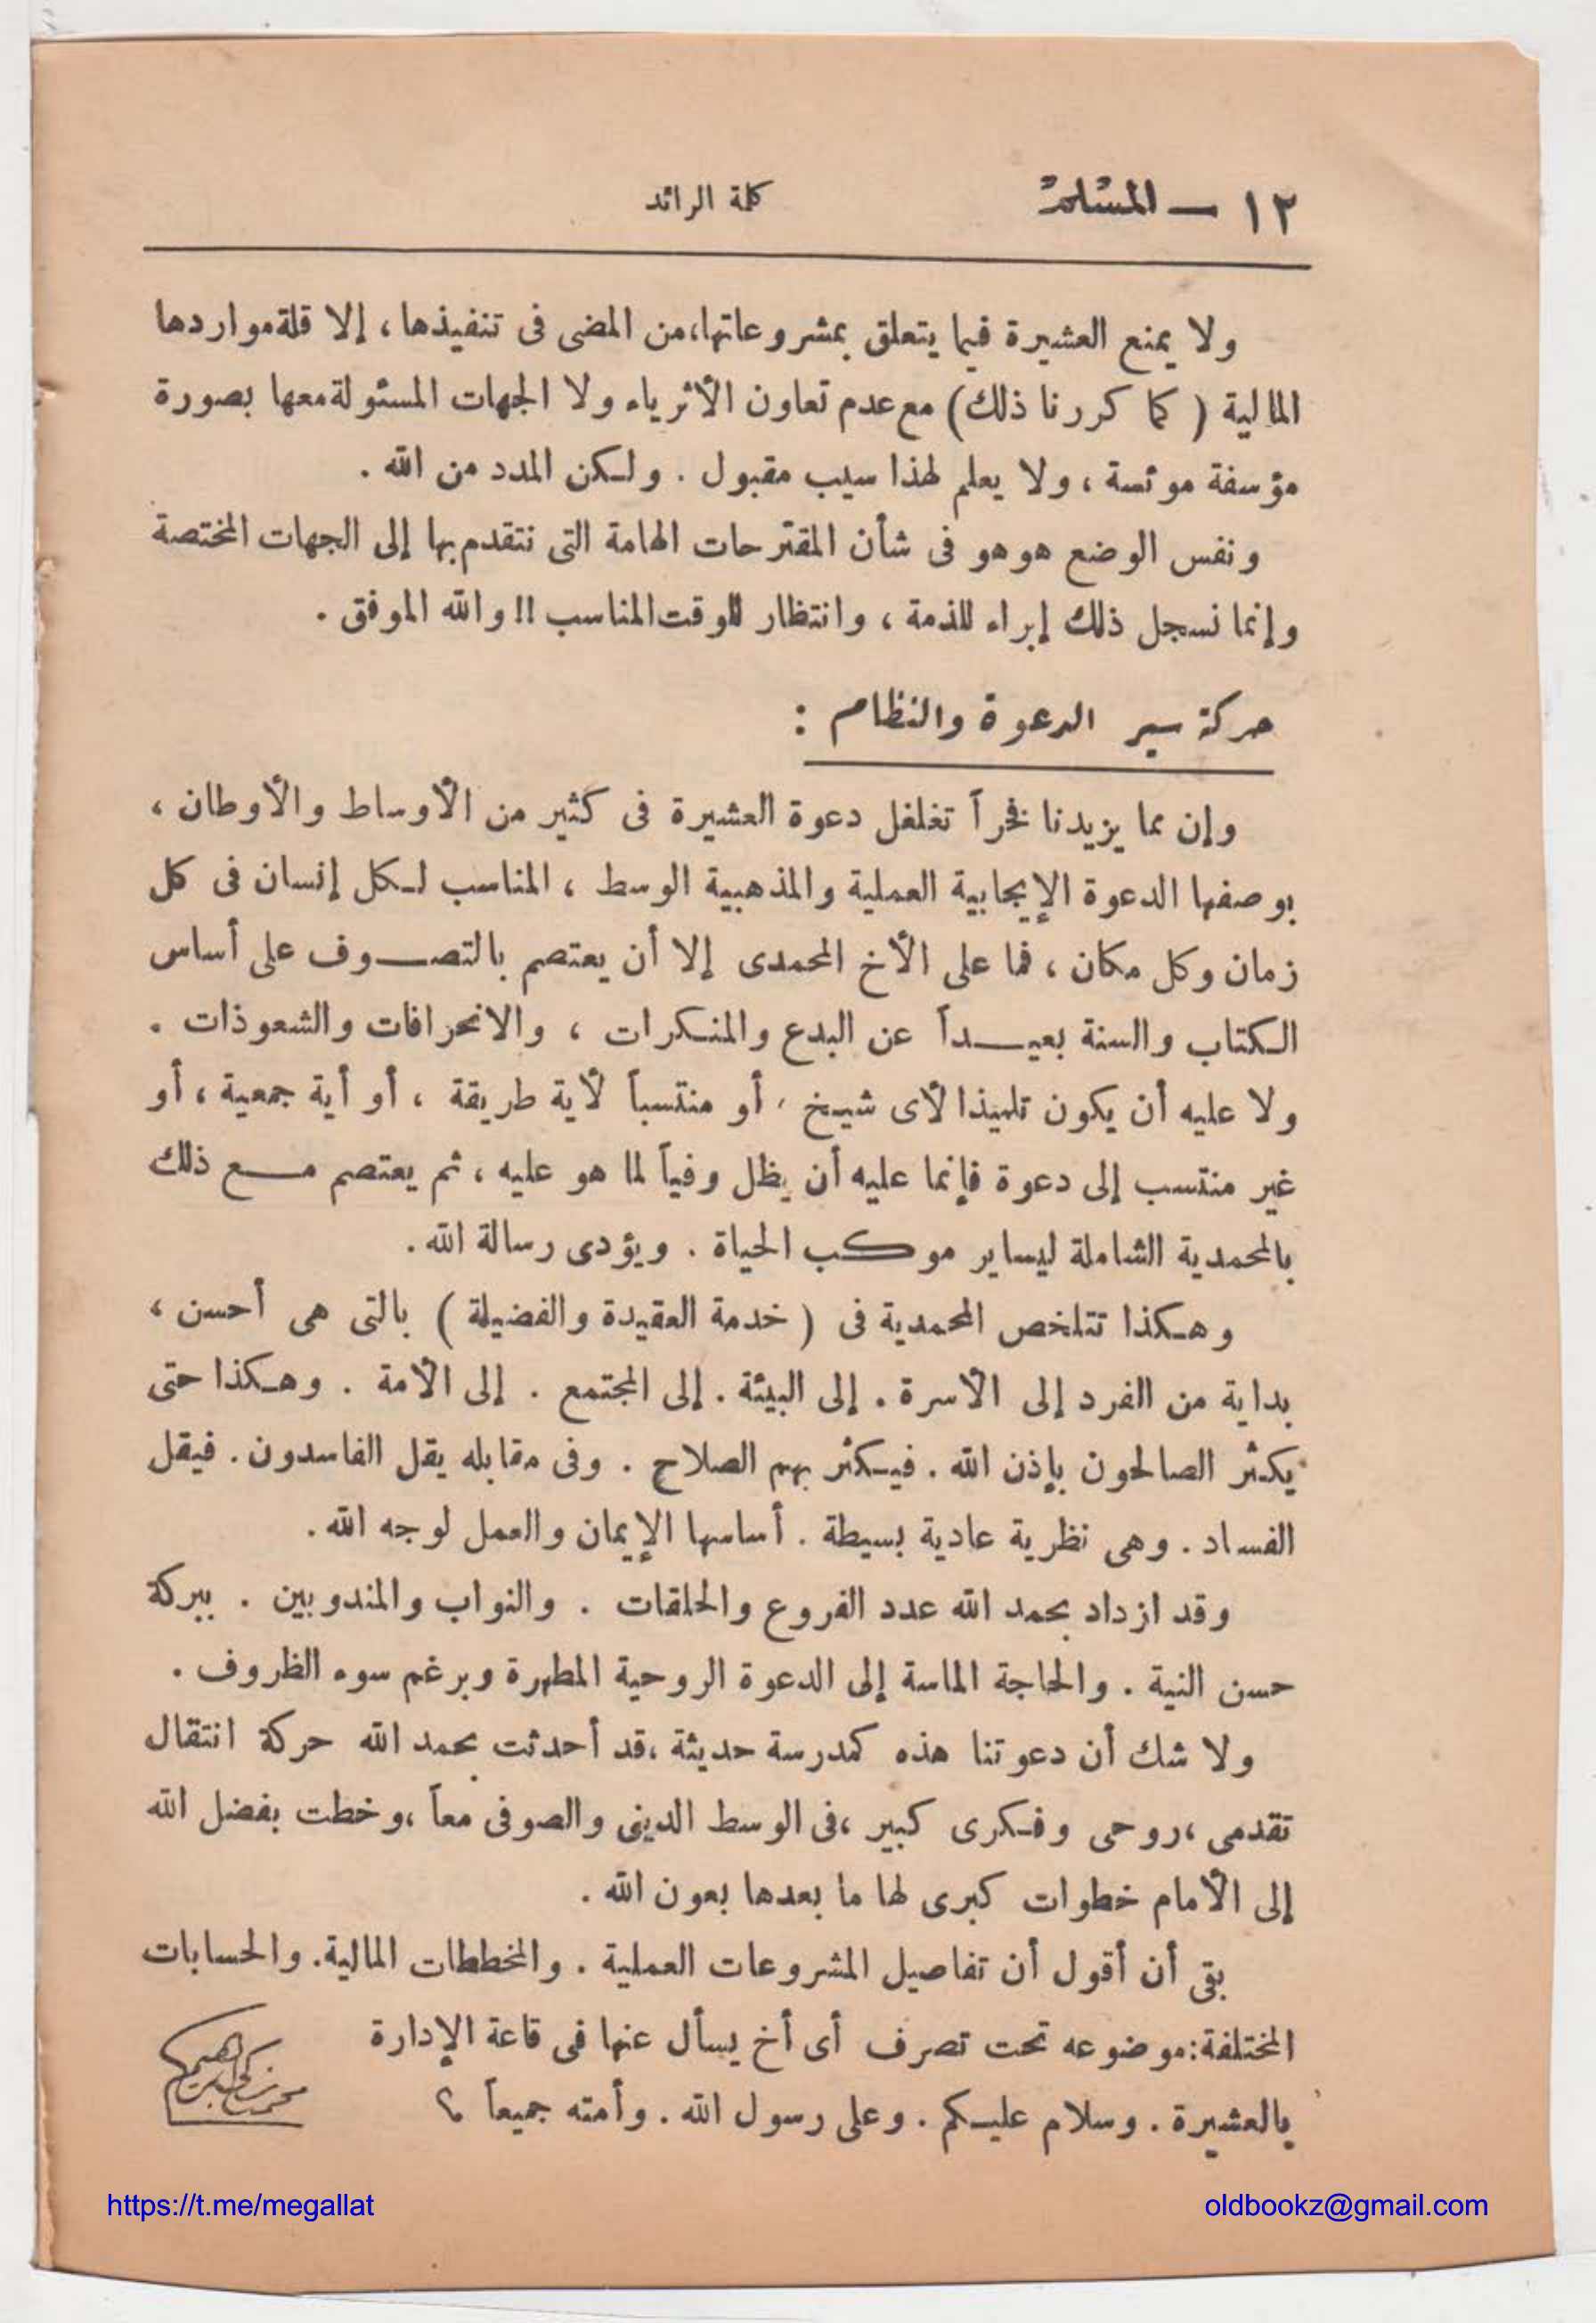 ١٢ — المسلم
كلمة الرائد
ولا يمنع العشيرة فيما يتعلق بمشروعاتها،من المضى فى تنفيذها ، إلا قلة مواردها
المالية ( كما كررنا ذلك ) مع عدم تعاون الأثرياء ولا الجهات المسئولة معها بصورة
مؤسفة موئسة ، ولا يعلم لهذا سبب مقبول . ولكن المدد من الله .
ونفس الوضع هو هو فى شأن المقترحات الهامة التى نتقدم بها إلى الجهات المختصة
وإنما نسجل ذلك إبراء للذمة ، وانتظار للوقت المناسب !! والله الموفق .
حركة سير الدعوة والنظام :
وإن مما يزيدنا فخراً تغلغل دعوة العشيرة فى كثير من الأوساط والأوطان ،
بوصفها الدعوة الإيجابية العملية والمذهبية الوسط ، المناسب لكل إنسان فى كل
زمان وكل مكان ، فما على الأخ المحمدى إلا أن يعتصم بالتصوف على أساس
الكتاب والسنة بعيداً عن البدع والمنكرات ، والانحرافات والشعوذات .
ولا عليه أن يكون تلميذا لأى شيخ ، أو منتسباً لأية طريقة ، أو أية جمعية ، أو
غير منتسب إلى دعوة فإنما عليه أن يظل وفياً لما هو عليه ، ثم يعتصم مع ذلك
بالمحمدية الشاملة ليساير موكب الحياة . ويؤدى رسالة الله .
وهكذا تتلخص المحمدية فى ( خدمة العقيدة والفضيلة ) بالتى هى أحسن ،
بداية من الفرد إلى الأسرة . إلى البيئة . إلى المجتمع . إلى الأمة . وهكذا حتى
يكثر الصالحون بإذن الله . فيكثر بهم الصلاح . وفى مقابله يقل الفاسدون . فيقل
الفساد . وهى نظرية عادية بسيطة . أساسها الإيمان والعمل لوجه الله .
وقد ازداد بحمد الله عدد الفروع والحلقات . والنواب والمندوبين . ببركة
حسن النية . والحاجة الماسة إلى الدعوة الروحية المطهرة وبرغم سوء الظروف .
ولا شك أن دعوتنا هذه كمدرسة حديثة ،قد أحدثت بحمد الله حركة انتقال
تقدمى ،روحى وفكرى كبير ،فى الوسط الدينى والصوفى معاً ،وخطت بفضل الله
إلى الأمام خطوات كبرى لها ما بعدها بعون الله .
بقى أن أقول أن تفاصيل المشروعات العملية . والمخططات المالية. والحسابات
المختلفة:موضوعه تحت تصرف أى أخ يسأل عنها فى قاعة الإدارة
بالعشيرة . وسلام عليكم . وعلى رسول الله . وأمته جميعاً ؟
https://t.me/megallat
oldbookz@gmail.com